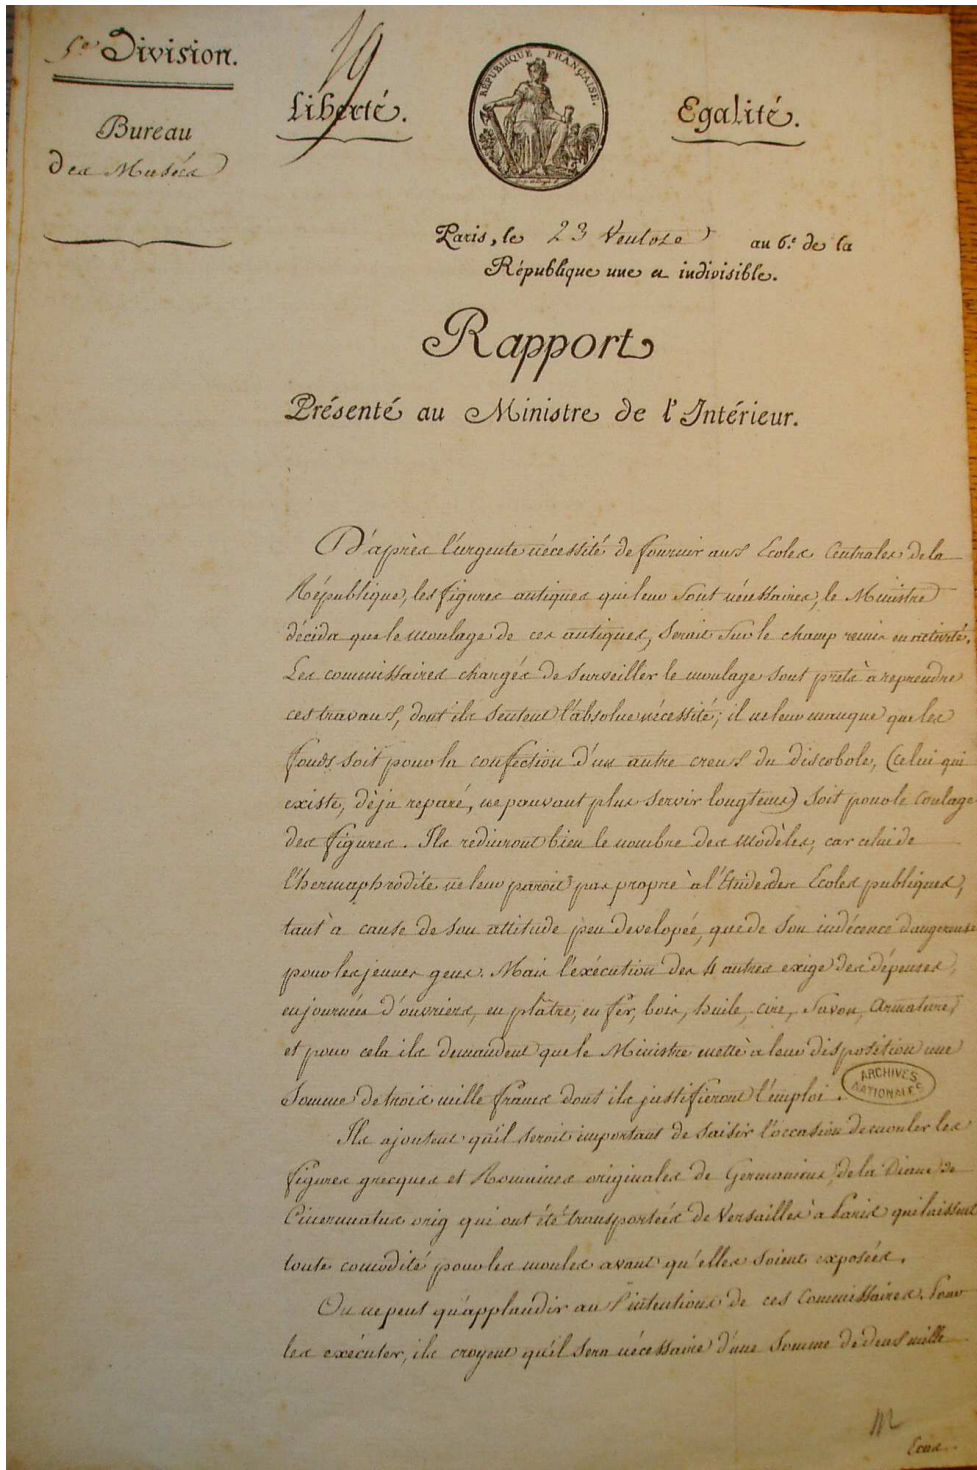 5e. Division.
19
Bureau
des Musées
Liberté.
RÉPUBLIQUE FRANÇAISE.
Egalité.
Paris, le 23 Ventose an 6.e de la
République une et indivisible.
Rapport
Présenté au Ministre de l'Intérieur.
D'après l'urgente nécessité de fournir aux Ecoles Centrales de la
République, les figures antiques qui leur sont nécessaires, le Ministre
décida que le moulage de ces antiques, serait sur le champ remis en activité.
Les commissaires chargés de surveiller le moulage sont prets à reprendre
ces travaux, dont ils sentent l'absolue nécessité; il ne leur manque que les
fonds soit pour la confection d'un autre creux du discobole, (celui qui
existe, dèja reparé, ne pouvant plus servir longtems) soit pour le coulage
des figures. Ils reduiront bien le nombre des modèles; car celui de
l'hermaphrodite ne leur paroit pas propre à l'Etude des Ecoles publiques,
tant à cause de son attitude peu developée, que de son indécence dangereuse
pour les jeunes gens. Mais l'exécution des 4 autres exige des dépenses
en journées d'ouvriers, en plâtre, en fer, bois, huile, cire, savon, armature,
et pour cela ils demandent que le Ministre mette à leur disposition une
somme de trois mille francs dont ils justifieront l'emploi.
ARCHIVES NATIONALES
Ils ajoutent qu'il seroit important de saisir l'occasion de mouler les
figures grecques et Romaines originales de Germanicus, de la Diane, de
Cincinnatus orig qui ont été transportées de Versailles à Paris qui laissent
toute comodité pour les moules avant qu'elles soient exposées.
On ne peut qu'applaudir aux intentions de ces Commissaires. Pour
les exécuter, ils croyent qu'il sera nécessaire d'une somme de deux mille